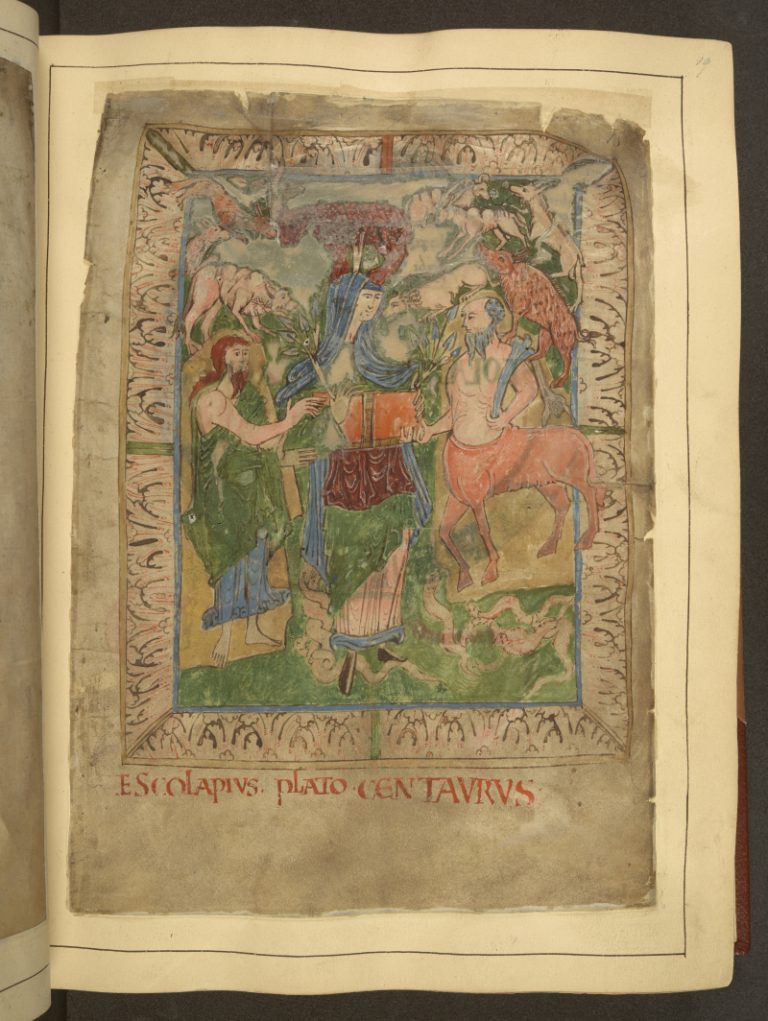 ESCOLAPIVS · PLATO · CENTAVRVS ·